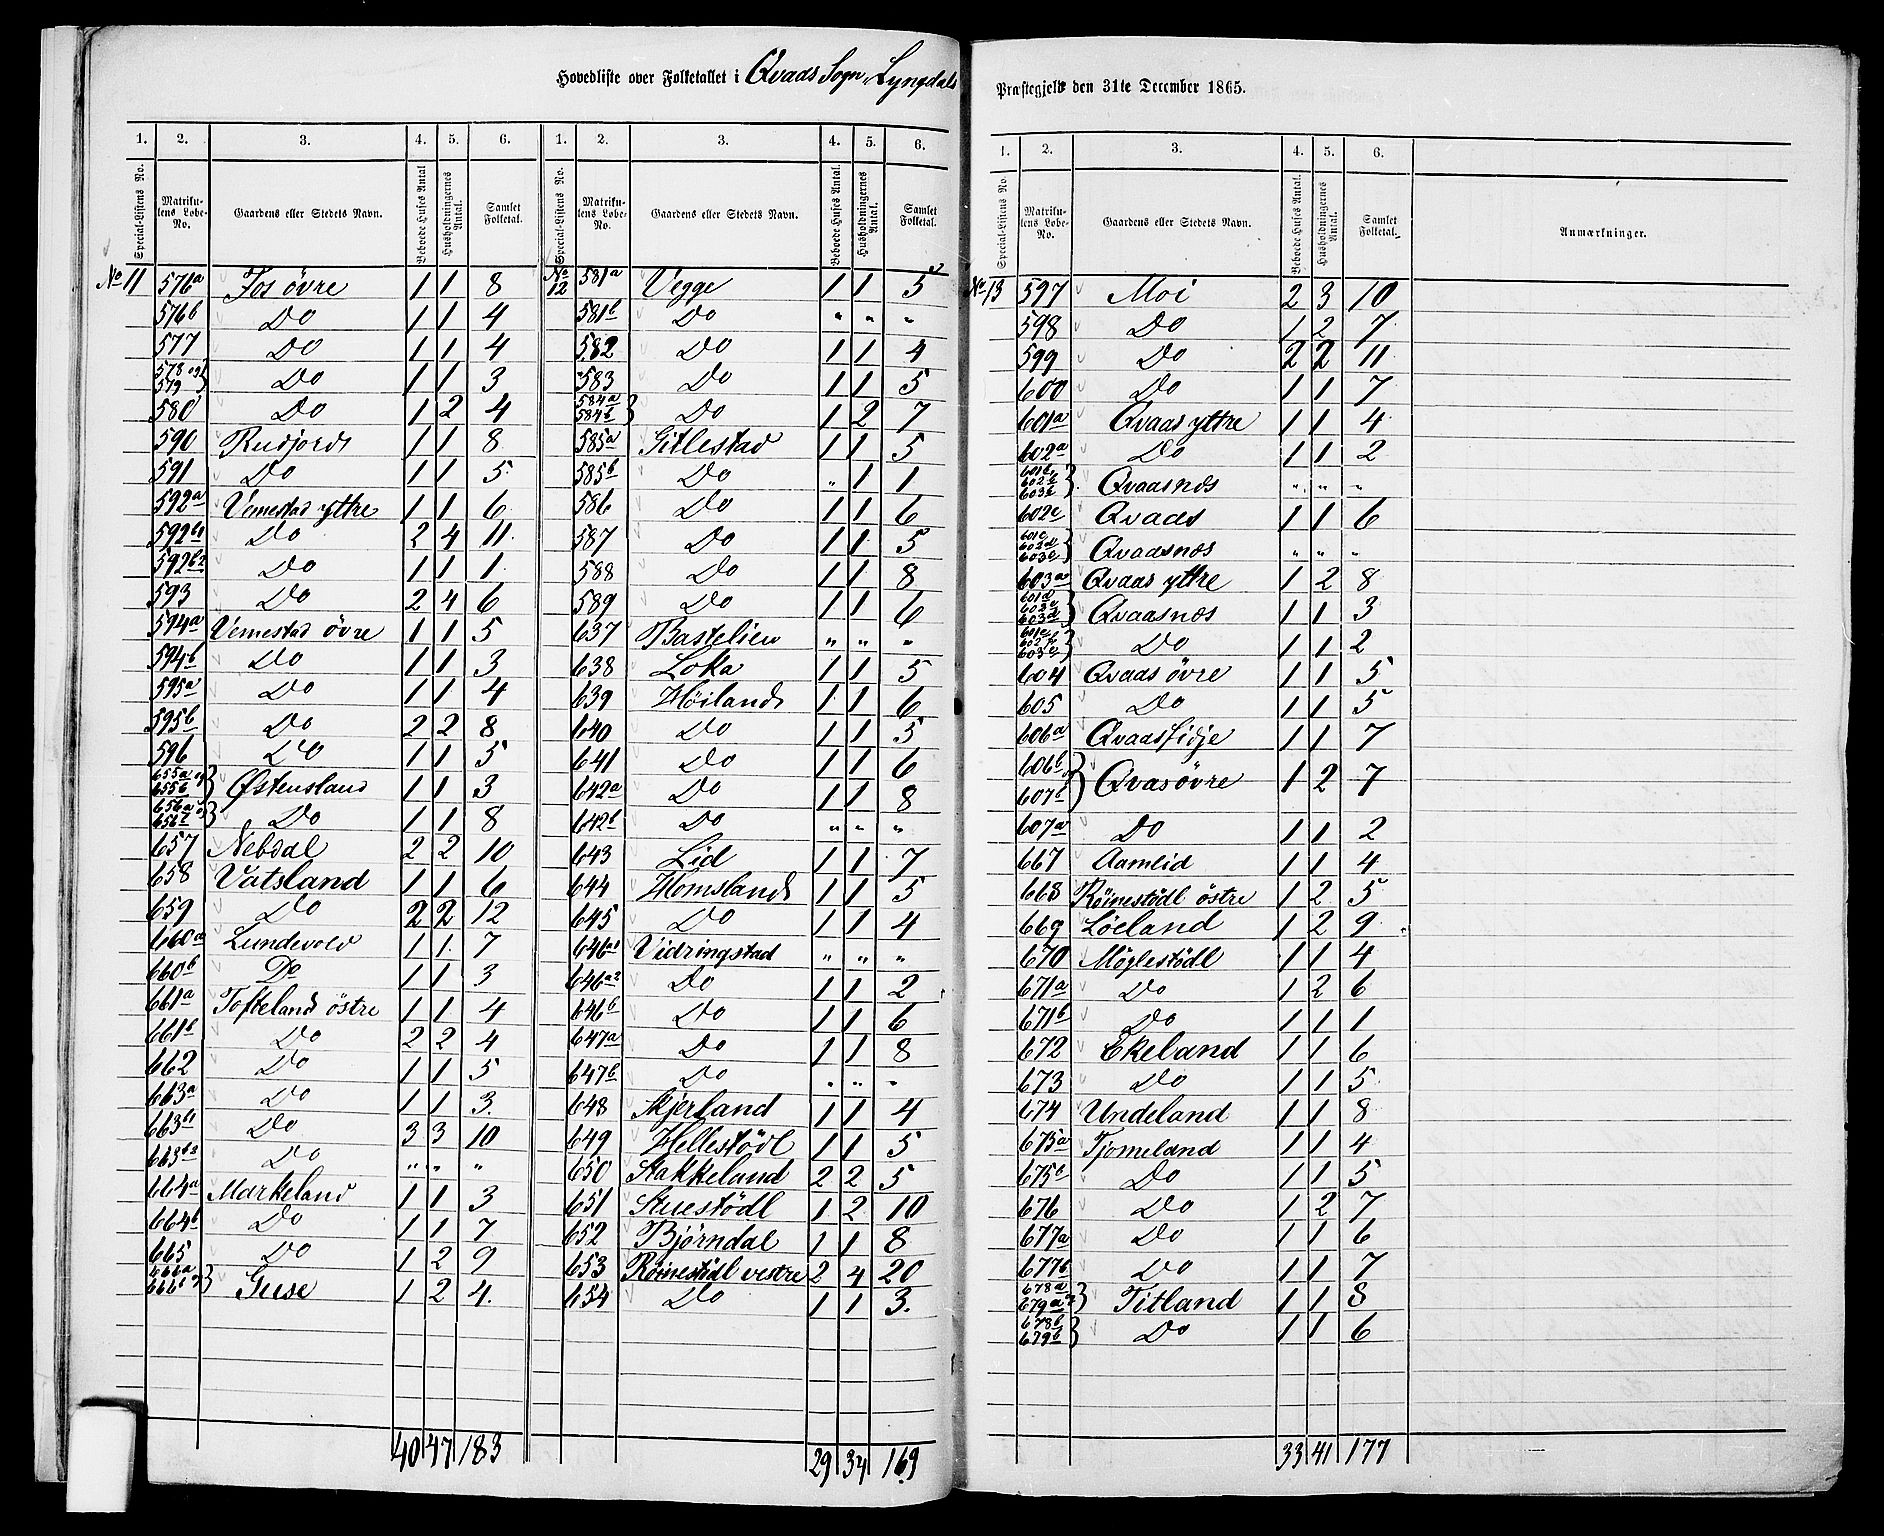 Hovedliste over Folketallet i Qvads Sogn, Lyngdals Præstegjeld den 31te December 1865.
1. 2. 3. 4. 5. 6. 1. 2. 3. 4. 5. 6.
Special-Listens No. Matrikulens Løbe-No. Gaardens eller Stedets Navn. Beboede Huses Antal Husholdningernes Antal. Samlet Folketal. Special-Listens No. Matrikulens Løbe-No. Gaardens eller Stedets Navn. Beboede Huses Antal. Husholdningernes Antal. Samlet Folketal.
No 11 576a Fos övre 1 1 8
576b Do 1 1 4
577 Do 1 1 4
578 og 579 Do 1 1 3
580 Do 1 2 4
590 Rudjord 1 1 8
591 Do 1 1 5
592a Vemestad yttre 1 1 6
592b1 Do 2 4 11
592b2 Do 1 1 1
593 Do 2 4 6
594a Vemestad övre 1 1 5
594b Do 1 1 3
595a Do 1 1 4
595b Do 2 2 8
596 Do 1 1 5
655a og 655b Østensland 1 1 3
656a og 656b Do 1 1 8
657 Nebdal 2 2 10
658 Vatsland 1 1 6
659 Do 2 2 12
660a Lundevold 1 1 7
660b Do 1 1 3
661a Tofteland östre 1 1 4
661b Do 2 2 4
662 Do 1 1 5
663a Do 1 1 3
663b1 Do 3 3 10
663b2 Do " " "
664a Markeland 1 1 3
664b Do 1 1 7
665 Do 1 2 9
666a 666b Guse 1 2 4
40 47 183
No 12 581a Vegge 1 1 5
581b Do " " "
582 Do 1 1 4
583 Do 1 1 5
584a 584b Do 1 2 7
585a Gitlestad 1 1 5
585b Do " 1 1
586 Do 1 1 6
587 Do 1 1 5
588 Do 1 1 8
589 Do 1 1 6
637 Bastelien " " "
638 Loka 1 1 5
639 Höiland 1 1 6
640 Do 1 1 5
641 Do 1 1 6
642a Do 1 1 8
642b Do " " "
643 Lid 1 1 7
644 Homsland 1 1 5
645 Do 1 1 4
646a1 Vidringstad " " "
646a2 Do 1 1 2
646b Do 1 1 6
647a Do 1 1 8
647b Do " " "
648 Skjerland 1 1 4
649 Hellestödl 1 1 5
650 Stakkeland 2 2 5
651 Stuestödl 1 2 10
652 Björndal 1 1 8
653 Röinestödl vestre 2 4 20
654 Do 1 1 3
29 34 169
1. 2. 3. 4. 5. 6.
Special-Listens No. Matrikulens Løbe-No. Gaardens eller Stedets Navn. Beboede Huses Antal. Husholdningernes Antal. Samlet Folketal. Anmærkninger.
No 13 597 Moi 2 3 10
598 Do 1 2 7
599 Do 2 2 11
600 Do 1 1 7
601a Qvaas yttre 1 1 4
602a Do 1 1 2
601b 602b 603b Qvaasnæs " " "
602c Qvaas 1 1 6
601c 602d 603c Qvaasnæs " " "
603a Qvaas yttre 1 2 8
601d 602e 603d Qvaasnæs 1 1 3
601e 602f 603e Do 1 1 2
604 Qvaas övre 1 1 5
605 Do 1 1 5
606a Qvaasfidje 1 1 7
606b 607b Qvasövre 1 2 7
607a Do 1 1 2
667 Aamlid 1 1 4
668 Röinestödl östre 1 2 5
669 Löeland 1 2 9
670 Möglestödl 1 1 4
671a Do 1 2 6
671b Do 1 1 1
672 Ekeland 1 1 6
673 Do 1 1 5
674 Undeland 1 1 8
675a Tjomeland 1 1 4
675b Do 1 1 5
676 Do 1 2 7
677a Do 1 1 6
677b Do 1 1 7
678a 679a Titland 1 1 8
678b 679b Do 1 1 6
33 41 177